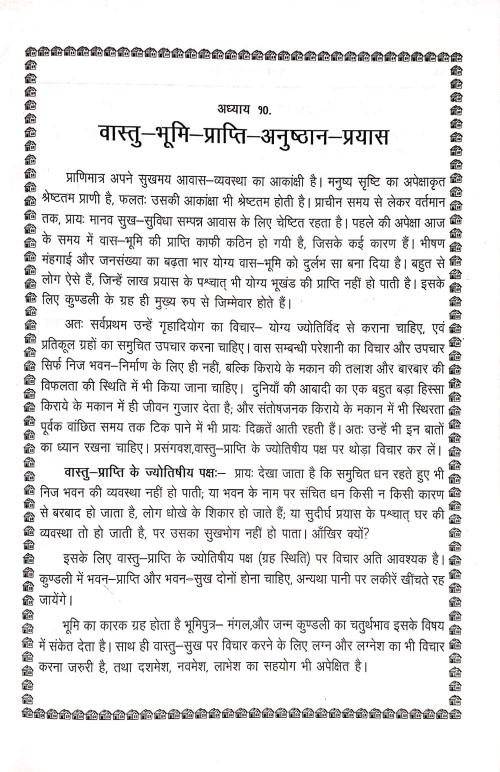 अध्याय १०.
वास्तु–भूमि–प्राप्ति–अनुष्ठान–प्रयास
प्राणिमात्र अपने सुखमय आवास–व्यवस्था का आकांक्षी है। मनुष्य सृष्टि का अपेक्षाकृत
श्रेष्टतम प्राणी है, फलतः उसकी आकांक्षा भी श्रेष्टतम होती है। प्राचीन समय से लेकर वर्तमान
तक, प्रायः मानव सुख–सुविधा सम्पन्न आवास के लिए चेष्टित रहता है। पहले की अपेक्षा आज
के समय में वास–भूमि की प्राप्ति काफी कठिन हो गयी है, जिसके कई कारण हैं। भीषण
मंहगाई और जनसंख्या का बढ़ता भार योग्य वास–भूमि को दुर्लभ सा बना दिया है। बहुत से
लोग ऐसे हैं, जिन्हें लाख प्रयास के पश्चात् भी योग्य भूखंड की प्राप्ति नहीं हो पाती है। इसके
लिए कुण्डली के ग्रह ही मुख्य रुप से जिम्मेवार होते हैं।
अतः सर्वप्रथम उन्हें गृहादियोग का विचार– योग्य ज्योतिर्विद से कराना चाहिए, एवं
प्रतिकूल ग्रहों का समुचित उपचार करना चाहिए। वास सम्बन्धी परेशानी का विचार और उपचार
सिर्फ निज भवन–निर्माण के लिए ही नहीं, बल्कि किराये के मकान की तलाश और बारबार की
विफलता की स्थिति में भी किया जाना चाहिए। दुनियाँ की आबादी का एक बहुत बड़ा हिस्सा
किराये के मकान में ही जीवन गुजार देता है; और संतोषजनक किराये के मकान में भी स्थिरता
पूर्वक वांछित समय तक टिक पाने में भी प्रायः दिक्कतें आती रहती हैं। अतः उन्हें भी इन बातों
का ध्यान रखना चाहिए। प्रसंगवश,वास्तु–प्राप्ति के ज्योतिषीय पक्ष पर थोड़ा विचार कर लें।
वास्तु–प्राप्ति के ज्योतिषीय पक्षः– प्रायः देखा जाता है कि समुचित धन रहते हुए भी
निज भवन की व्यवस्था नहीं हो पाती; या भवन के नाम पर संचित धन किसी न किसी कारण
से बरबाद हो जाता है, लोग धोखे के शिकार हो जाते हैं; या सुदीर्घ प्रयास के पश्चात् घर की
व्यवस्था तो हो जाती है, पर उसका सुखभोग नहीं हो पाता। आँखिर क्यों?
इसके लिए वास्तु–प्राप्ति के ज्योतिषीय पक्ष (ग्रह स्थिति) पर विचार अति आवश्यक है।
कुण्डली में भवन–प्राप्ति और भवन–सुख दोनों होना चाहिए, अन्यथा पानी पर लकीरें खींचते रह
जायेंगे।
भूमि का कारक ग्रह होता है भूमिपुत्र– मंगल,और जन्म कुण्डली का चतुर्थभाव इसके विषय
में संकेत देता है। साथ ही वास्तु–सुख पर विचार करने के लिए लग्न और लग्नेश का भी विचार
करना जरुरी है, तथा दशमेश, नवमेश, लाभेश का सहयोग भी अपेक्षित है।